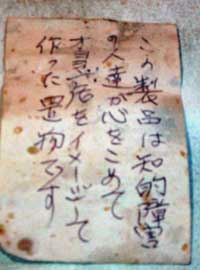 この製品は知的障害
の人達が心をこめて
をイメージして
作った置物です